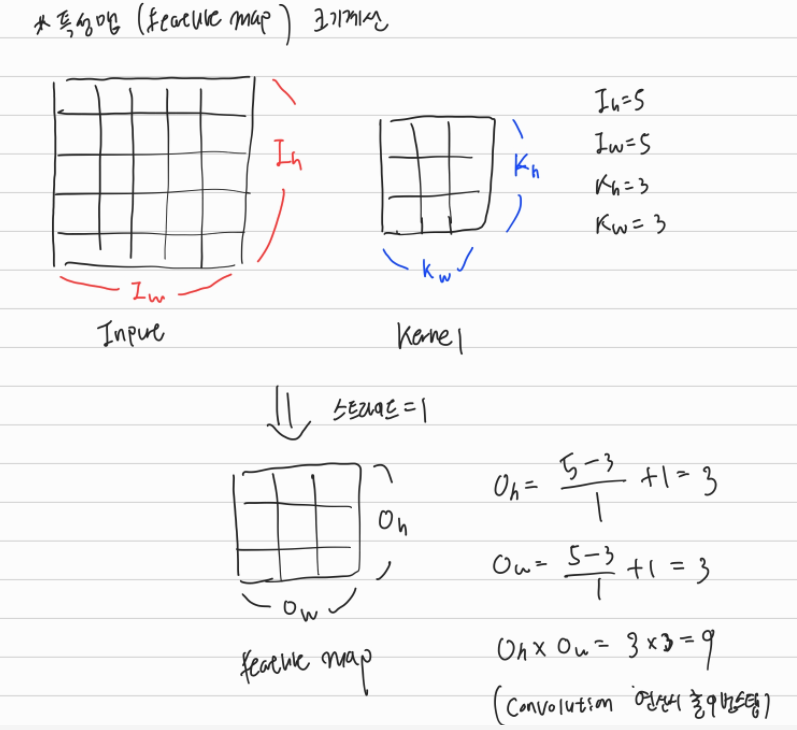 * 특성맵 (feature map) 크기계산
Ih
Iw
Input
Kh
Kw
Kernel
Ih=5
Iw=5
Kh=3
Kw=3
스트라이드=1
Oh
Ow
feature map
Oh= 5-3/1 +1=3
Ow= 5-3/1 +1=3
Oh x Ow = 3x3=9
(Convolution 연산시 총 9번 스텝)